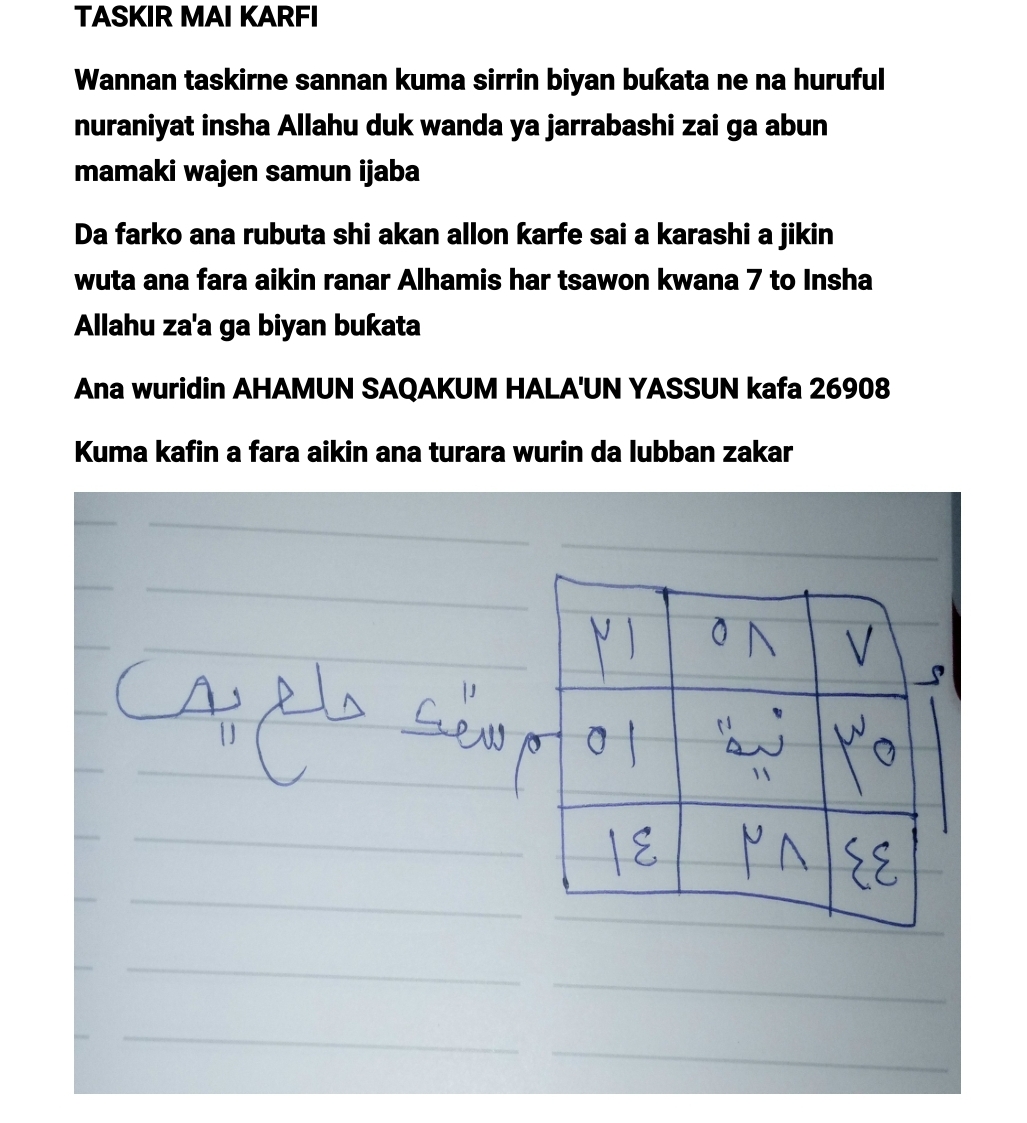 TASKIR MAI KARFI
Wannan taskirne sannan kuma sirrin biyan buƙata ne na huruful
nuraniyat insha Allahu duk wanda ya jarrabashi zai ga abun
mamaki wajen samun ijaba
Da farko ana rubuta shi akan allon ƙarfe sai a karashi a jikin
wuta ana fara aikin ranar Alhamis har tsawon kwana 7 to Insha
Allahu za'a ga biyan buƙata
Ana wuridin AHAMUN SAQAKUM HALA'UN YASSUN kafa 26908
Kuma kafin a fara aikin ana turara wurin da lubban zakar
٧ ٥٨ ٢١
٣٥ نية ٥١
٤٤ ٨٢ ٤١